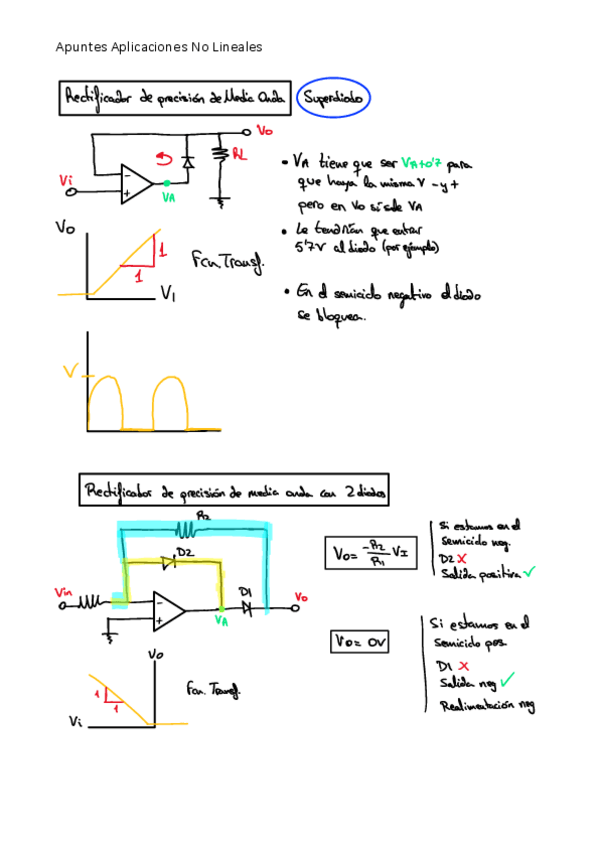 Apuntes Aplicaciones No Lineales
Rectificador de precisión de Media Onda
Superdiodo
Vo
RL
Vi
-
+
VA
• VA tiene que ser VA+0'7 para
que haya la misma V - y +
pero en Vo si sale VA
• Le tendrían que entrar
5'7V al diodo (por ejemplo)
• En el semiciclo negativo el diodo
se bloquea.
Vo
1
1
VI
Fcn. Transf.
V
Rectificador de precisión de media onda con 2 diodos
R2
D2
Vin
-
+
VA
D1
Vo
Vo = -R2/R1 VI
Si estamos en el
semiciclo neg.
D2 X
Salida positiva ✓
Vo = 0V
Si estamos en el
semiciclo pos.
D1 X
Salida neg ✓
Realimentación neg
Vo
1
1
Vi
Fcn. Transf.